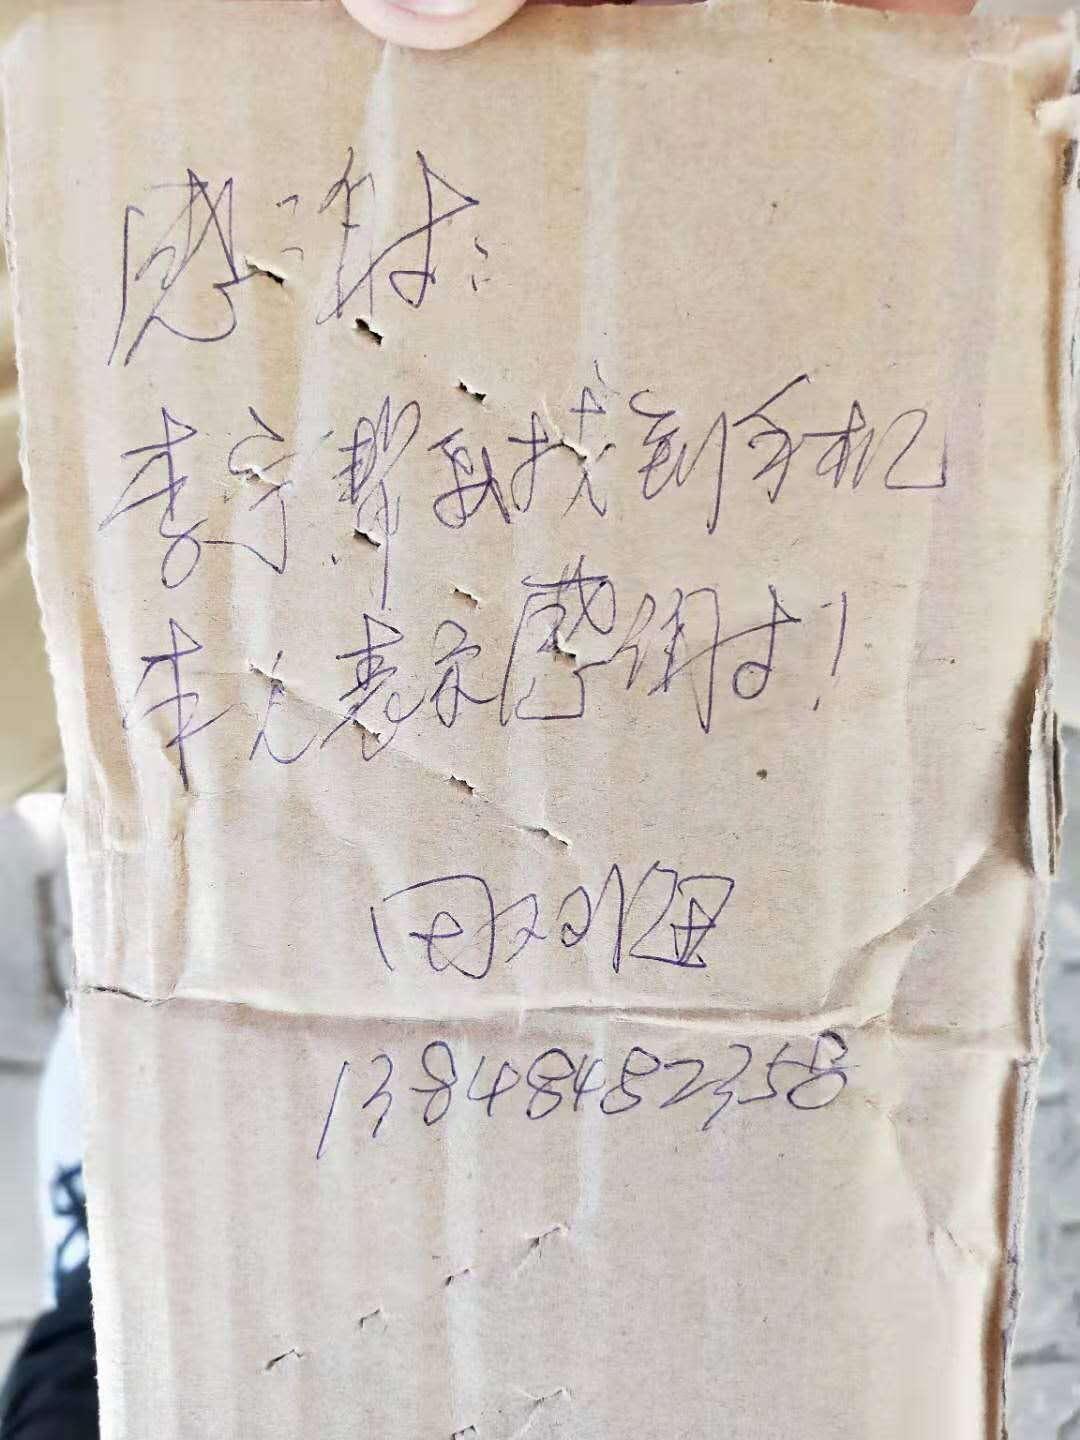 感谢:
李宁帮我找到手机
本人表示感谢!
田双妞
13848482358